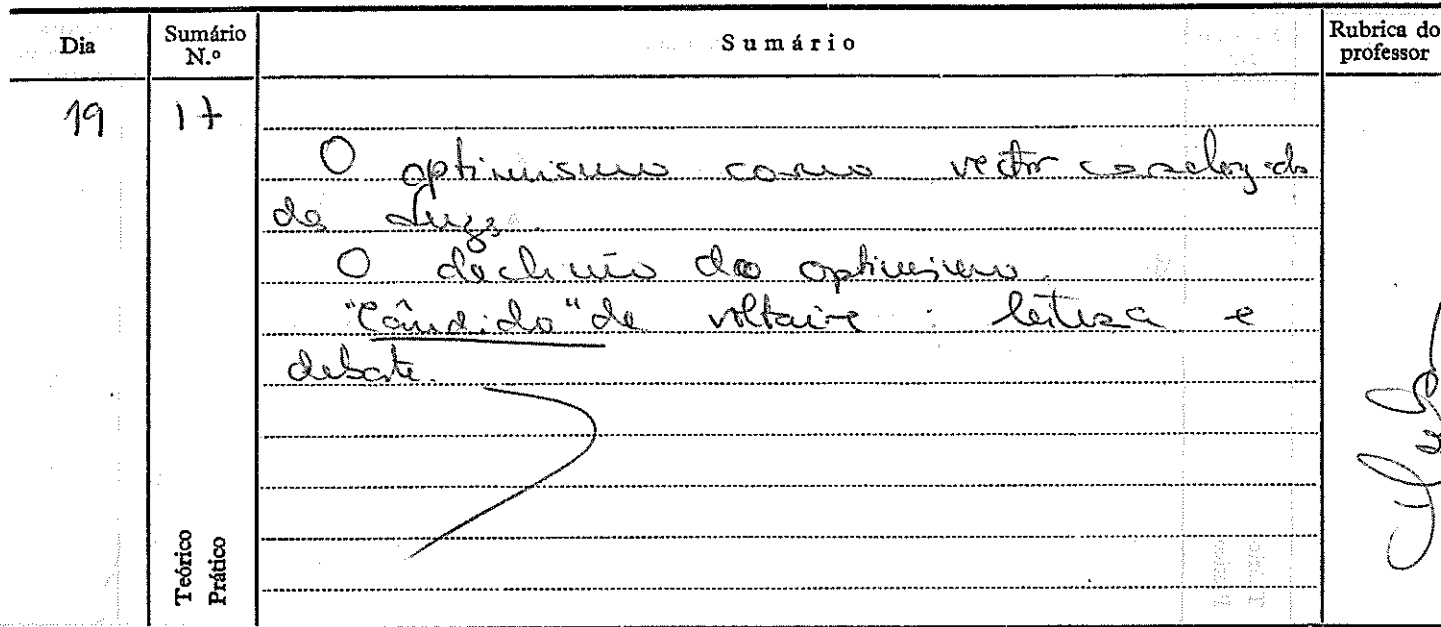 Dia
Sumário N.º
Sumário
Rubrica do professor
19
17
O optimismo como vector
das Luzes.
O declínio do optimismo.
"Cândido" de Voltaire: leitura e
debate.
Teórico
Prático